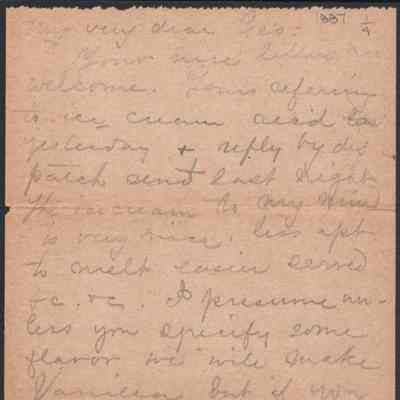 337 1/9
My very dear Geo-
Your nice letters are
welcome. Yours refering
to ice cream rec'd
yesterday + reply by dis
patch sent last night
The icecream to my mind
is very nice, less apt
to melt easier served
&c. &c. I presume un-
less you specify some
flavor we will make
Vanilla but if you